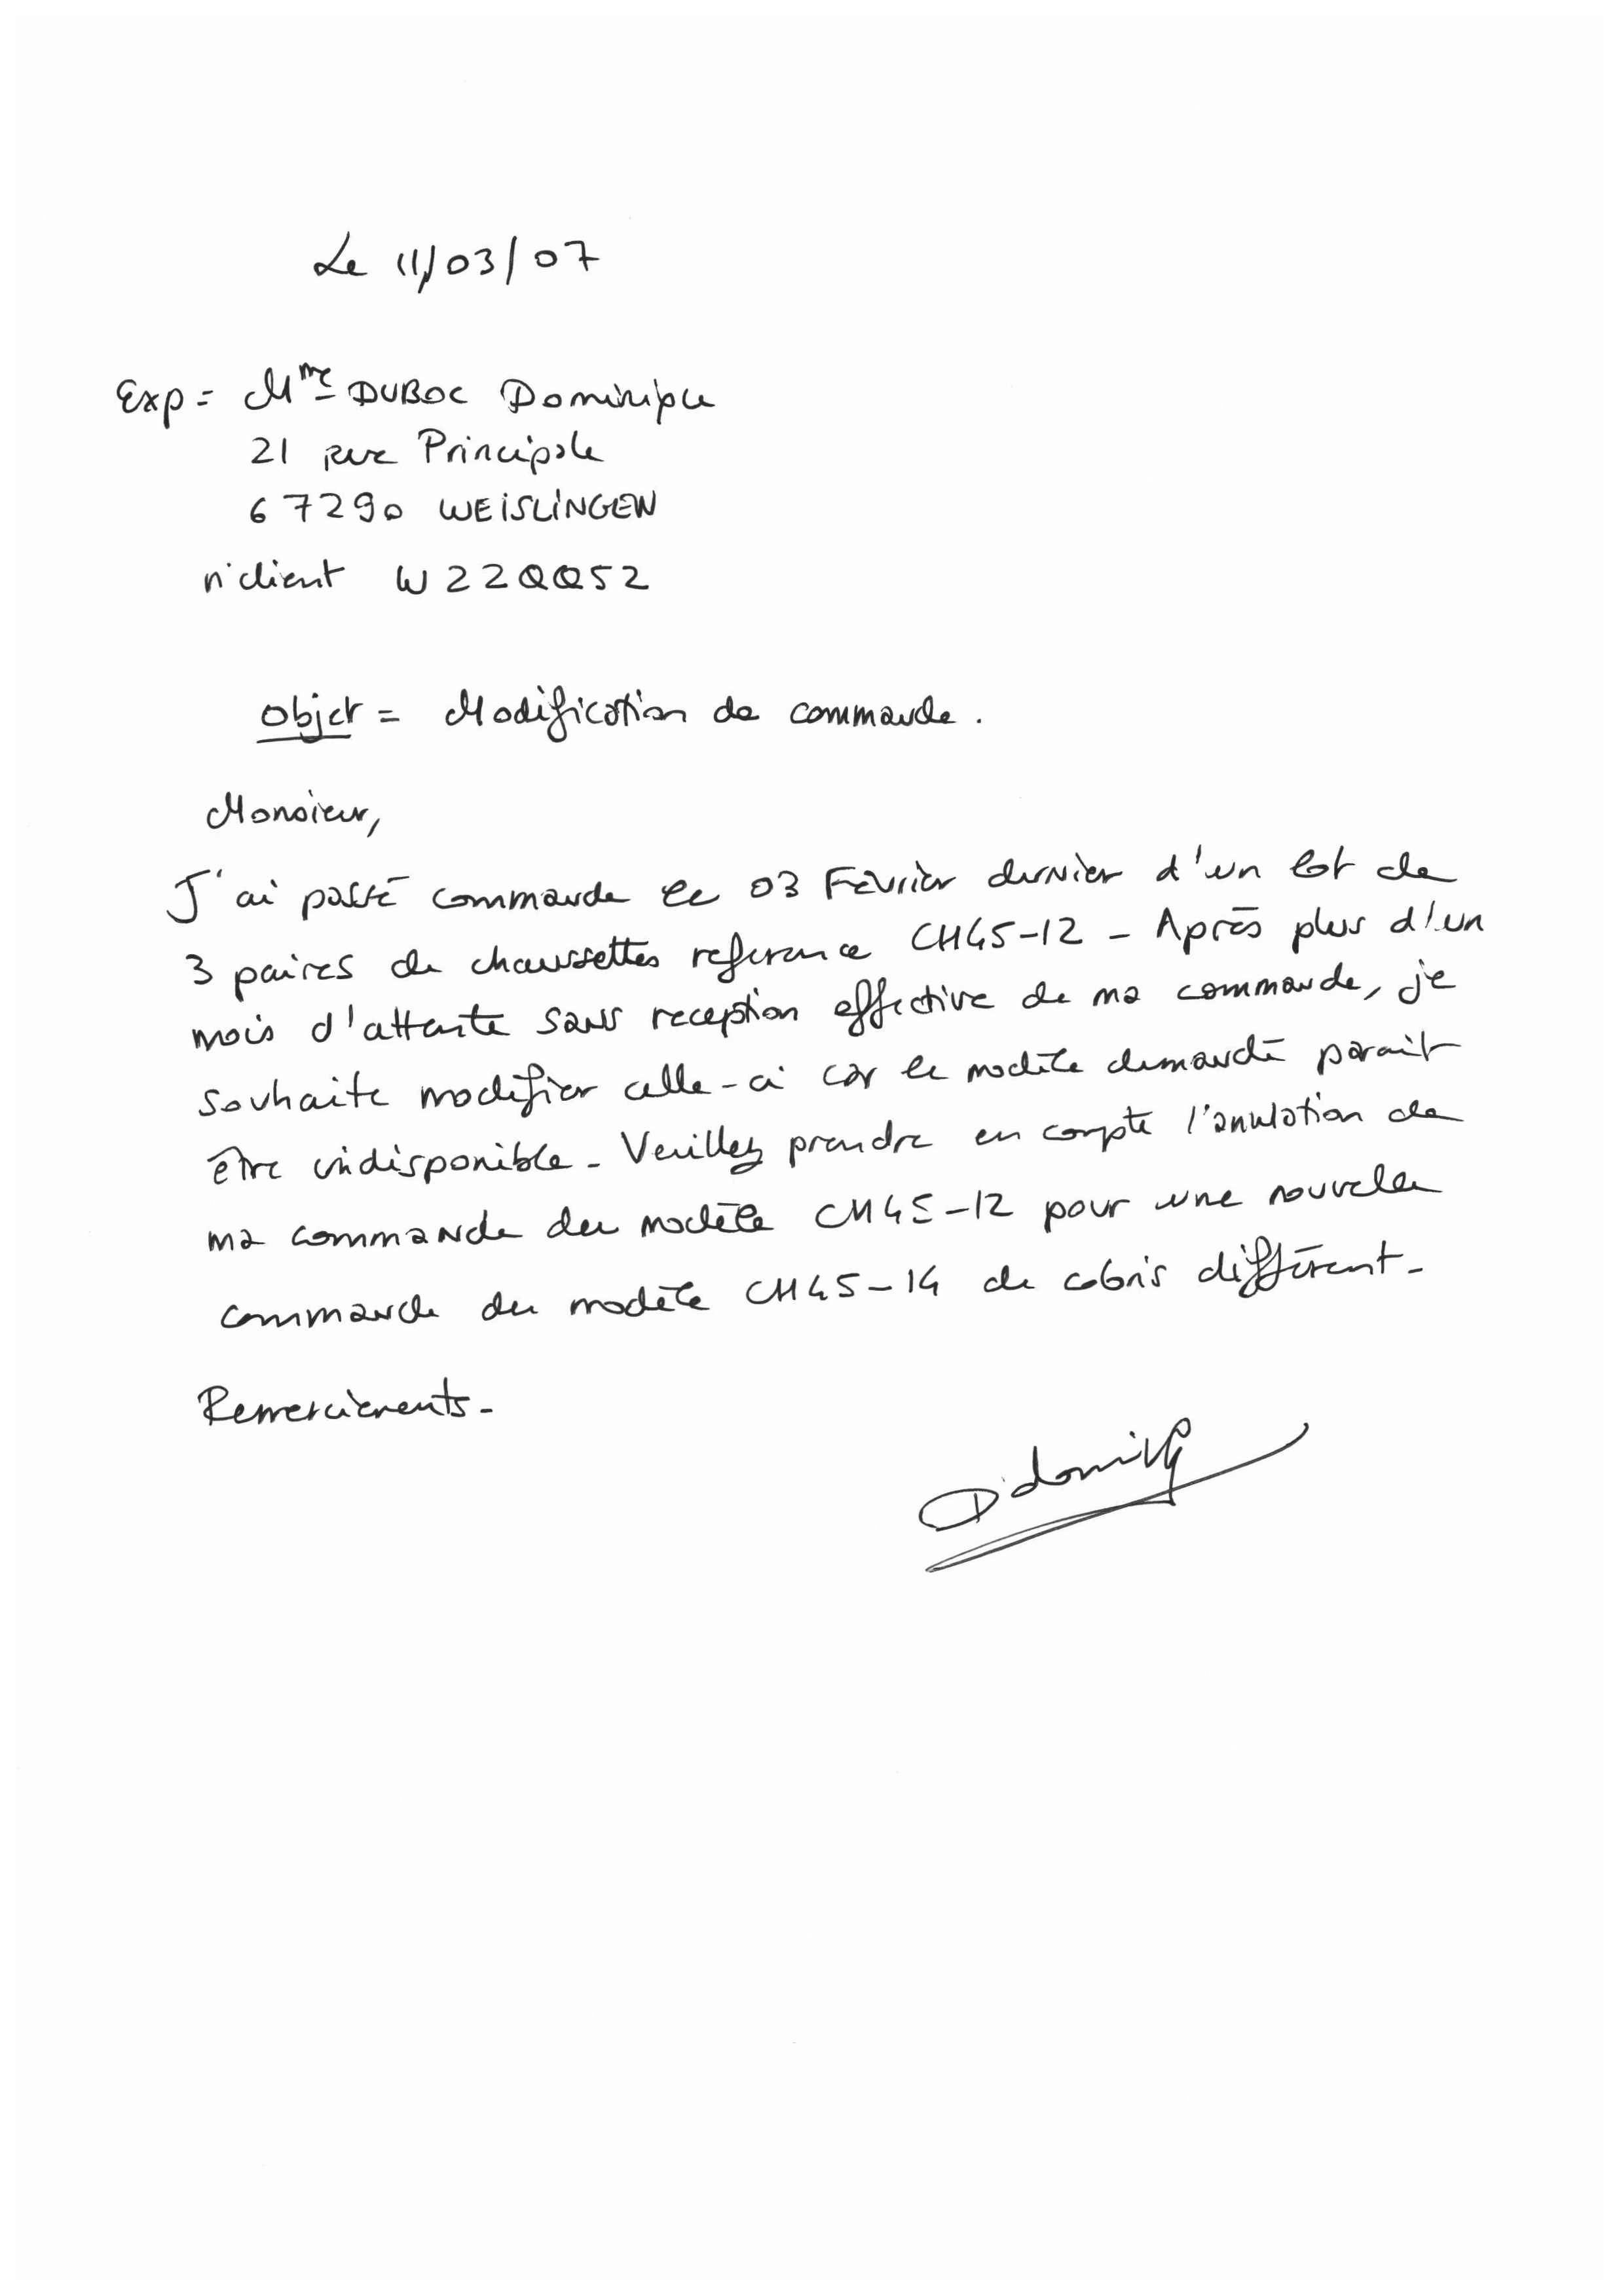 Le 11/03/07
Exp = Mme DUBOC Dominique
21 rue Principale
67290 WEISLINGEN
n° client W22QQ52
Objet = Modification de commande.
Monsieur,
J'ai passé commande le 03 Février dernier d'un lot de
3 paires de chaussettes reference CH45-12 - Après plus d'un
mois d'attente sans reception effective de ma commande, je
souhaite modifier celle-ci car le modèle demandé parait
être indisponible - Veuillez prendre en compte l'anulation de
ma commande du modèle CH45-12 pour une nouvelle
commande du modèle CH45-14 de coloris différent -
Remerciements -